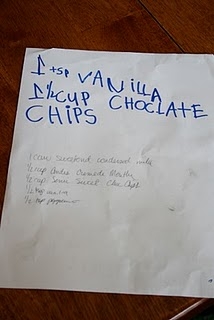 1 tsp VANILLA
1 1/2 CUP CHOCLATE
CHIPS
1 can sweetend condensed milk
1/2 cup Andes
1/2 cup Semi Sweet Choc Chips
1/2 tsp
1/2 tsp peppermint